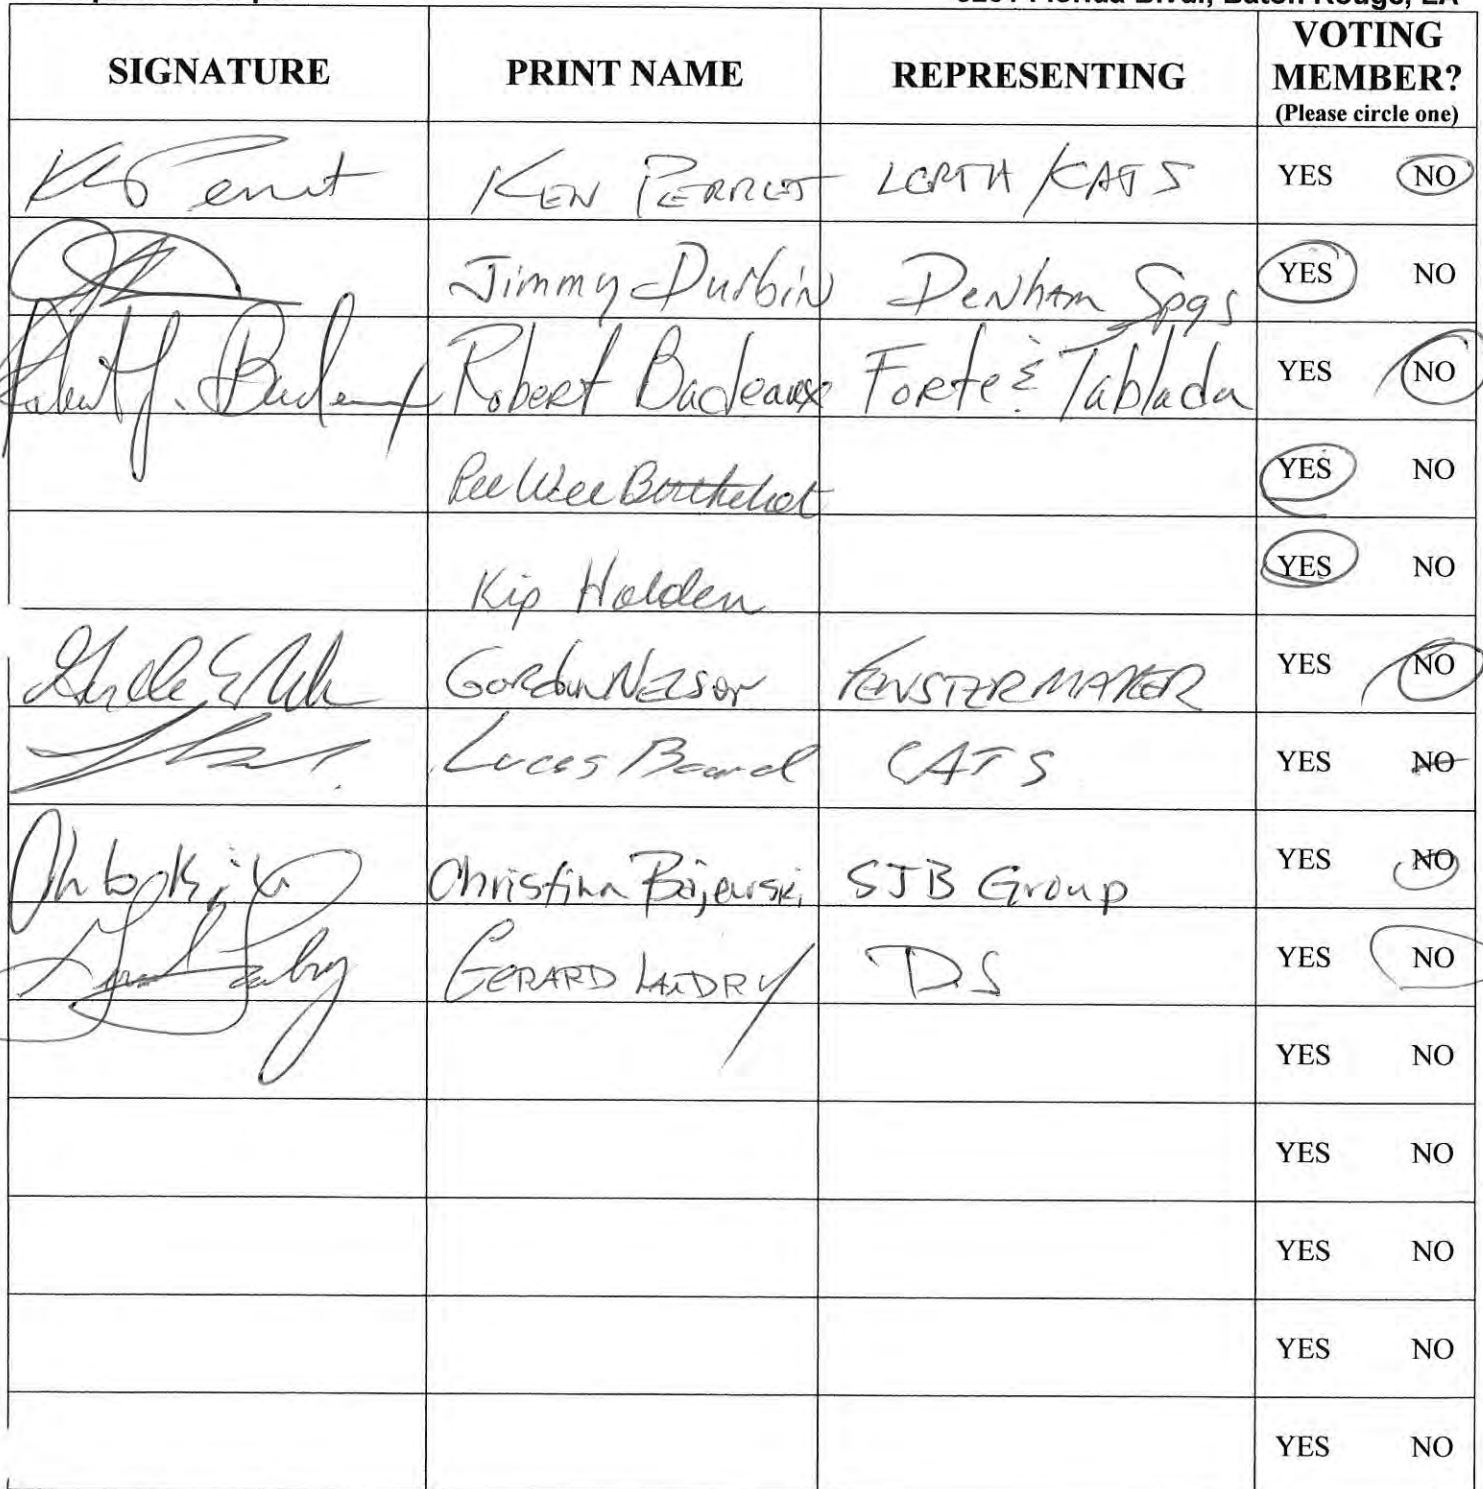 Florida Blvd., Baton Rouge, LA
SIGNATURE PRINT NAME REPRESENTING VOTING MEMBER?
(Please circle one)
KEN PERRET LCRTH/KATS YES NO
Jimmy Durbin DeNham Spgs YES NO
Robert J. Badeaux Robert Badeaux Forte & Tablada YES NO
Pee Wee Berthelot YES NO
Kip Holden YES NO
Gordon Nelson FENSTERMAKER YES NO
Lucas CATS YES NO
Christina Bajewski SJB Group YES NO
GERARD LANDRY D.S YES NO
YES NO
YES NO
YES NO
YES NO
YES NO